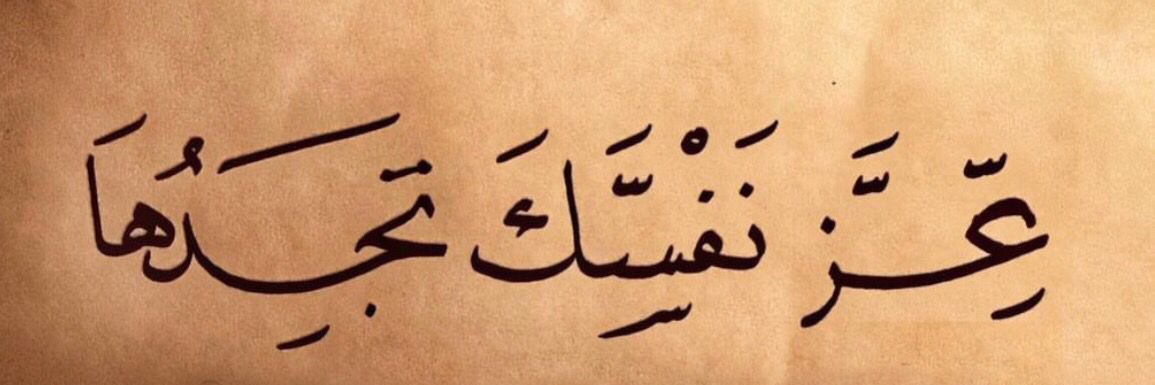 عِّزَّ نَفْسَّكَ تَجِدُهَا